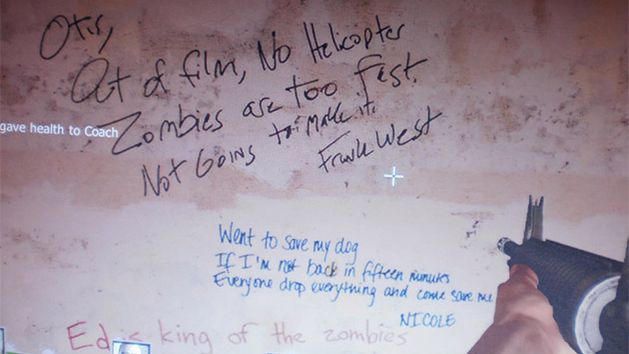 Otis,
Out of film, No Helicopter
Zombies are too fast.
Not Going to Make it.
Frank West
gave health to Coach
Went to save my dog
If I'm not back in fifteen minutes
Everyone drop everything and come save me
NICOLE
Ed is king of the zombies